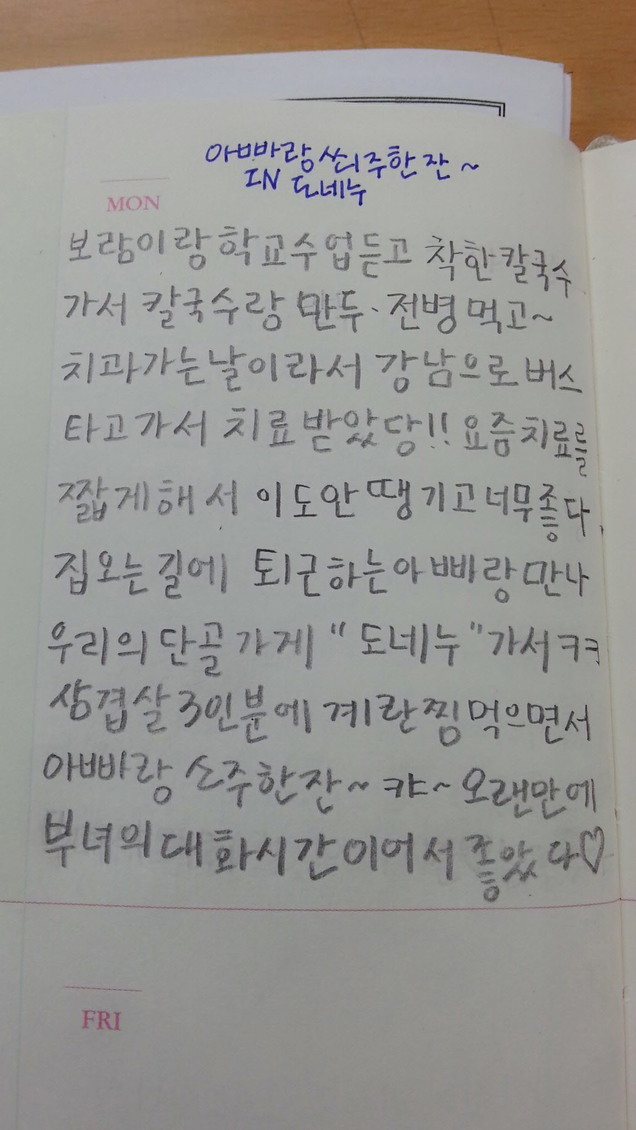 아빠랑 쐬주한잔~
IN 도네누
MON
보람이랑 학교수업듣고 착한칼국수
가서 칼국수랑 만두·전병먹고~
치과가는날이라서 강남으로 버스
타고가서 치료받았당!! 요즘치료를
짧게해서 이도안땡기고너무좋다.
집오는길에 퇴근하는아빠랑만나
우리의 단골가게 "도네누"가서ㅋㅋ
삼겹살3인분에 계란찜먹으면서
아빠랑 소주한잔~ 캬~ 오랜만에
부녀의대화시간이어서좋았다♡
FRI